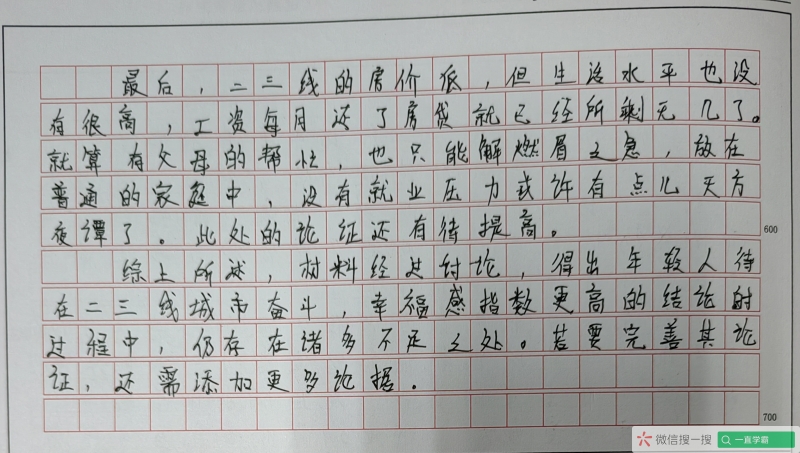 最后，二三线的房价低，但生活水平也没
有很高，工资每月还了房贷就已经所剩无几了。
就算有父母的帮忙，也只能解燃眉之急，放在
普通的家庭中，没有就业压力或许有点儿天方
夜谭了。此处的论证还有待提高。
600
综上所述，材料经过讨论，得出年轻人待
在二三线城市奋斗，幸福感指数更高的结论的
过程中，仍存在诸多不足之处。若要完善其论
证，还需添加更多论据。
700
微信搜一搜
一直学霸